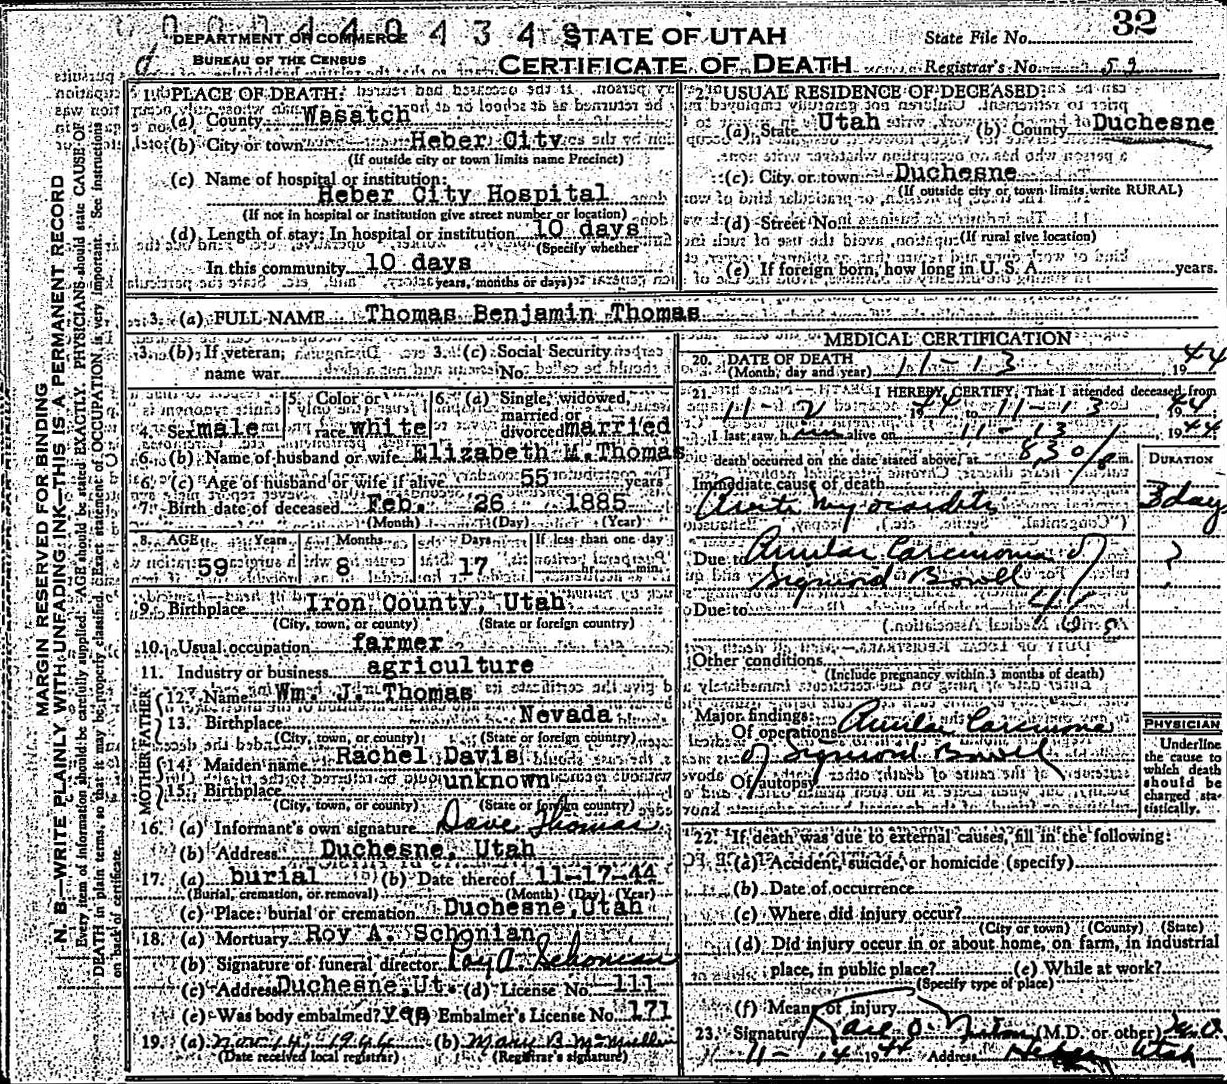 32
DEPARTMENT OF COMMERCE
BUREAU OF THE CENSUS
STATE OF UTAH
CERTIFICATE OF DEATH
State File No.
Registrar's No.
MARGIN RESERVED FOR BINDING
N. B.—WRITE PLAINLY WITH UNFADING INK—THIS IS A PERMANENT RECORD
Every item of information should be carefully supplied. AGE should be stated EXACTLY. PHYSICIANS should state CAUSE OF
DEATH in plain terms, so that it may be properly classified. Exact statement of OCCUPATION is very important. See instructions
on back of certificate.
1. PLACE OF DEATH:
(a) County Wasatch
(b) City or town Heber City
(If outside city or town limits name Precinct)
(c) Name of hospital or institution:
Heber City Hospital
(If not in hospital or institution give street number or location)
(d) Length of stay: In hospital or institution 10 days
(Specify whether
In this community 10 days
years, months or days)
2. USUAL RESIDENCE OF DECEASED:
(a) State Utah (b) County Duchesne
(c) City or town Duchesne
(If outside city or town limits write RURAL)
(d) Street No.
(If rural give location)
(e) If foreign born, how long in U. S. A. years.
3. (a) FULL NAME Thomas Benjamin Thomas
3. (b) If veteran, 3. (c) Social Security
name war No.
4. Sex male
5. Color or
race white
6. (a) Single, widowed,
married or
divorced married
6. (b) Name of husband or wife Elizabeth M. Thomas
6. (c) Age of husband or wife if alive 55 years
7. Birth date of deceased Feb. 26 1885
(Month) (Day) (Year)
8. AGE Years Months Days If less than one day
59 8 17 hr. min.
9. Birthplace Iron County, Utah
(City, town, or county) (State or foreign country)
10. Usual occupation farmer
11. Industry or business agriculture
FATHER
12. Name Wm. J. Thomas
13. Birthplace Nevada
(City, town, or county) (State or foreign country)
MOTHER
14. Maiden name Rachel Davis
15. Birthplace unknown
(City, town, or county) (State or foreign country)
16. (a) Informant's own signature Dave Thomas
(b) Address Duchesne, Utah
17. (a) burial (b) Date thereof 11-17-44
(Burial, cremation, or removal) (Month) (Day) (Year)
(c) Place: burial or cremation Duchesne, Utah
18. (a) Mortuary Roy A. Schonian
(b) Signature of funeral director Roy A. Schonian
(c) Address Duchesne, Ut. (d) License No. 111
(e) Was body embalmed? yes Embalmer's License No. 171
19. (a) Nov 14, 1944 (b) Mary B McMullin
(Date received local registrar) (Registrar's signature)
MEDICAL CERTIFICATION
20. DATE OF DEATH
(Month, day and year) 11-13 1944
21. I HEREBY CERTIFY, That I attended deceased from
11-2 1944 to 11-13 1944
I last saw him alive on 11-13, 1944
death occurred on the date stated above, at 8:30 m.
DURATION
Immediate cause of death
Acute Myocarditis 3 days
Due to Anular Carcinoma of ?
Sigmoid Bowell
Due to
Other conditions
(Include pregnancy within 3 months of death)
Major findings:
Of operations Anular Carcinoma
of Sigmoid Bowell
Of autopsy
PHYSICIAN
Underline
the cause to
which death
should be
charged sta-
tistically.
22. If death was due to external causes, fill in the following:
(a) Accident, suicide, or homicide (specify)
(b) Date of occurrence
(c) Where did injury occur?
(City or town) (County) (State)
(d) Did injury occur in or about home, on farm, in industrial
place, in public place? (e) While at work?
(Specify type of place)
(f) Means of injury
23. Signature (M.D. or other)
11-14 1944 Address Heber, Utah